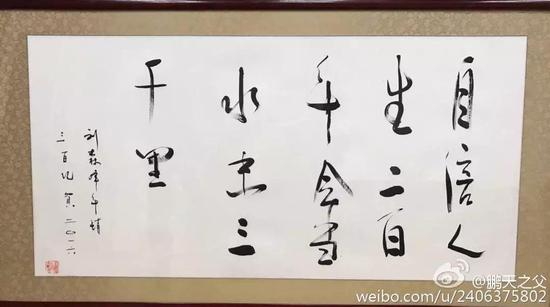 自信人
生二百
年会当
水击三
千里
刘森
三百 二〇一六
@鹏天之父
weibo.com/u/2406375802